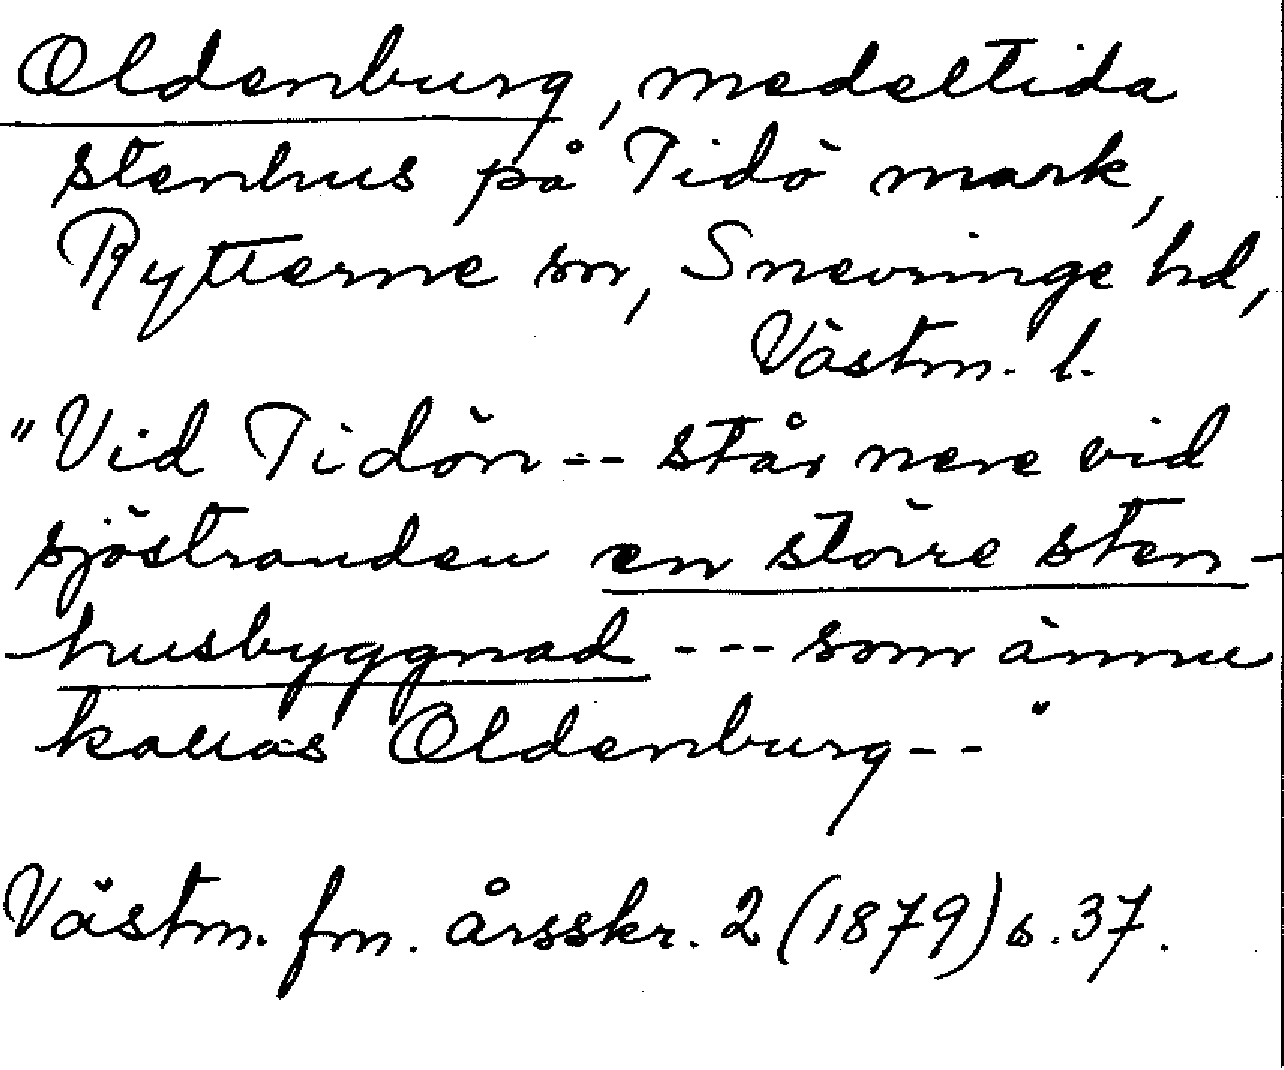 Oldenburg, medeltida
stenhus på Tidö mark,
Rytterne sn, Snevringe hd,
Västm. l.
"Vid Tidön -- står nere vid
sjöstranden en större sten-
husbyggnad --- som ännu
kallas Oldenburg -- "
Västm. fm. årsskr. 2 (1879) s. 37.